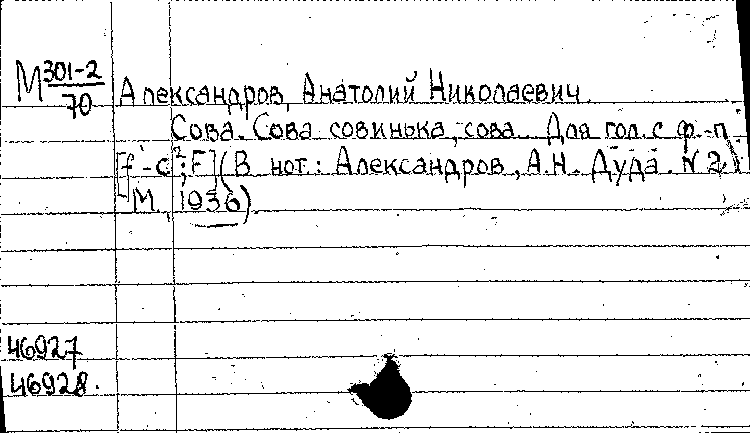 М 301-2/70 Александров, Анатолий Николаевич.
Сова. Сова совинька, сова... Для гол. с ф.-п.
[f¹-c²; F] (В нот.: Александров, А.Н. Дуда. N 2.
М., 1936).
46927
46928.